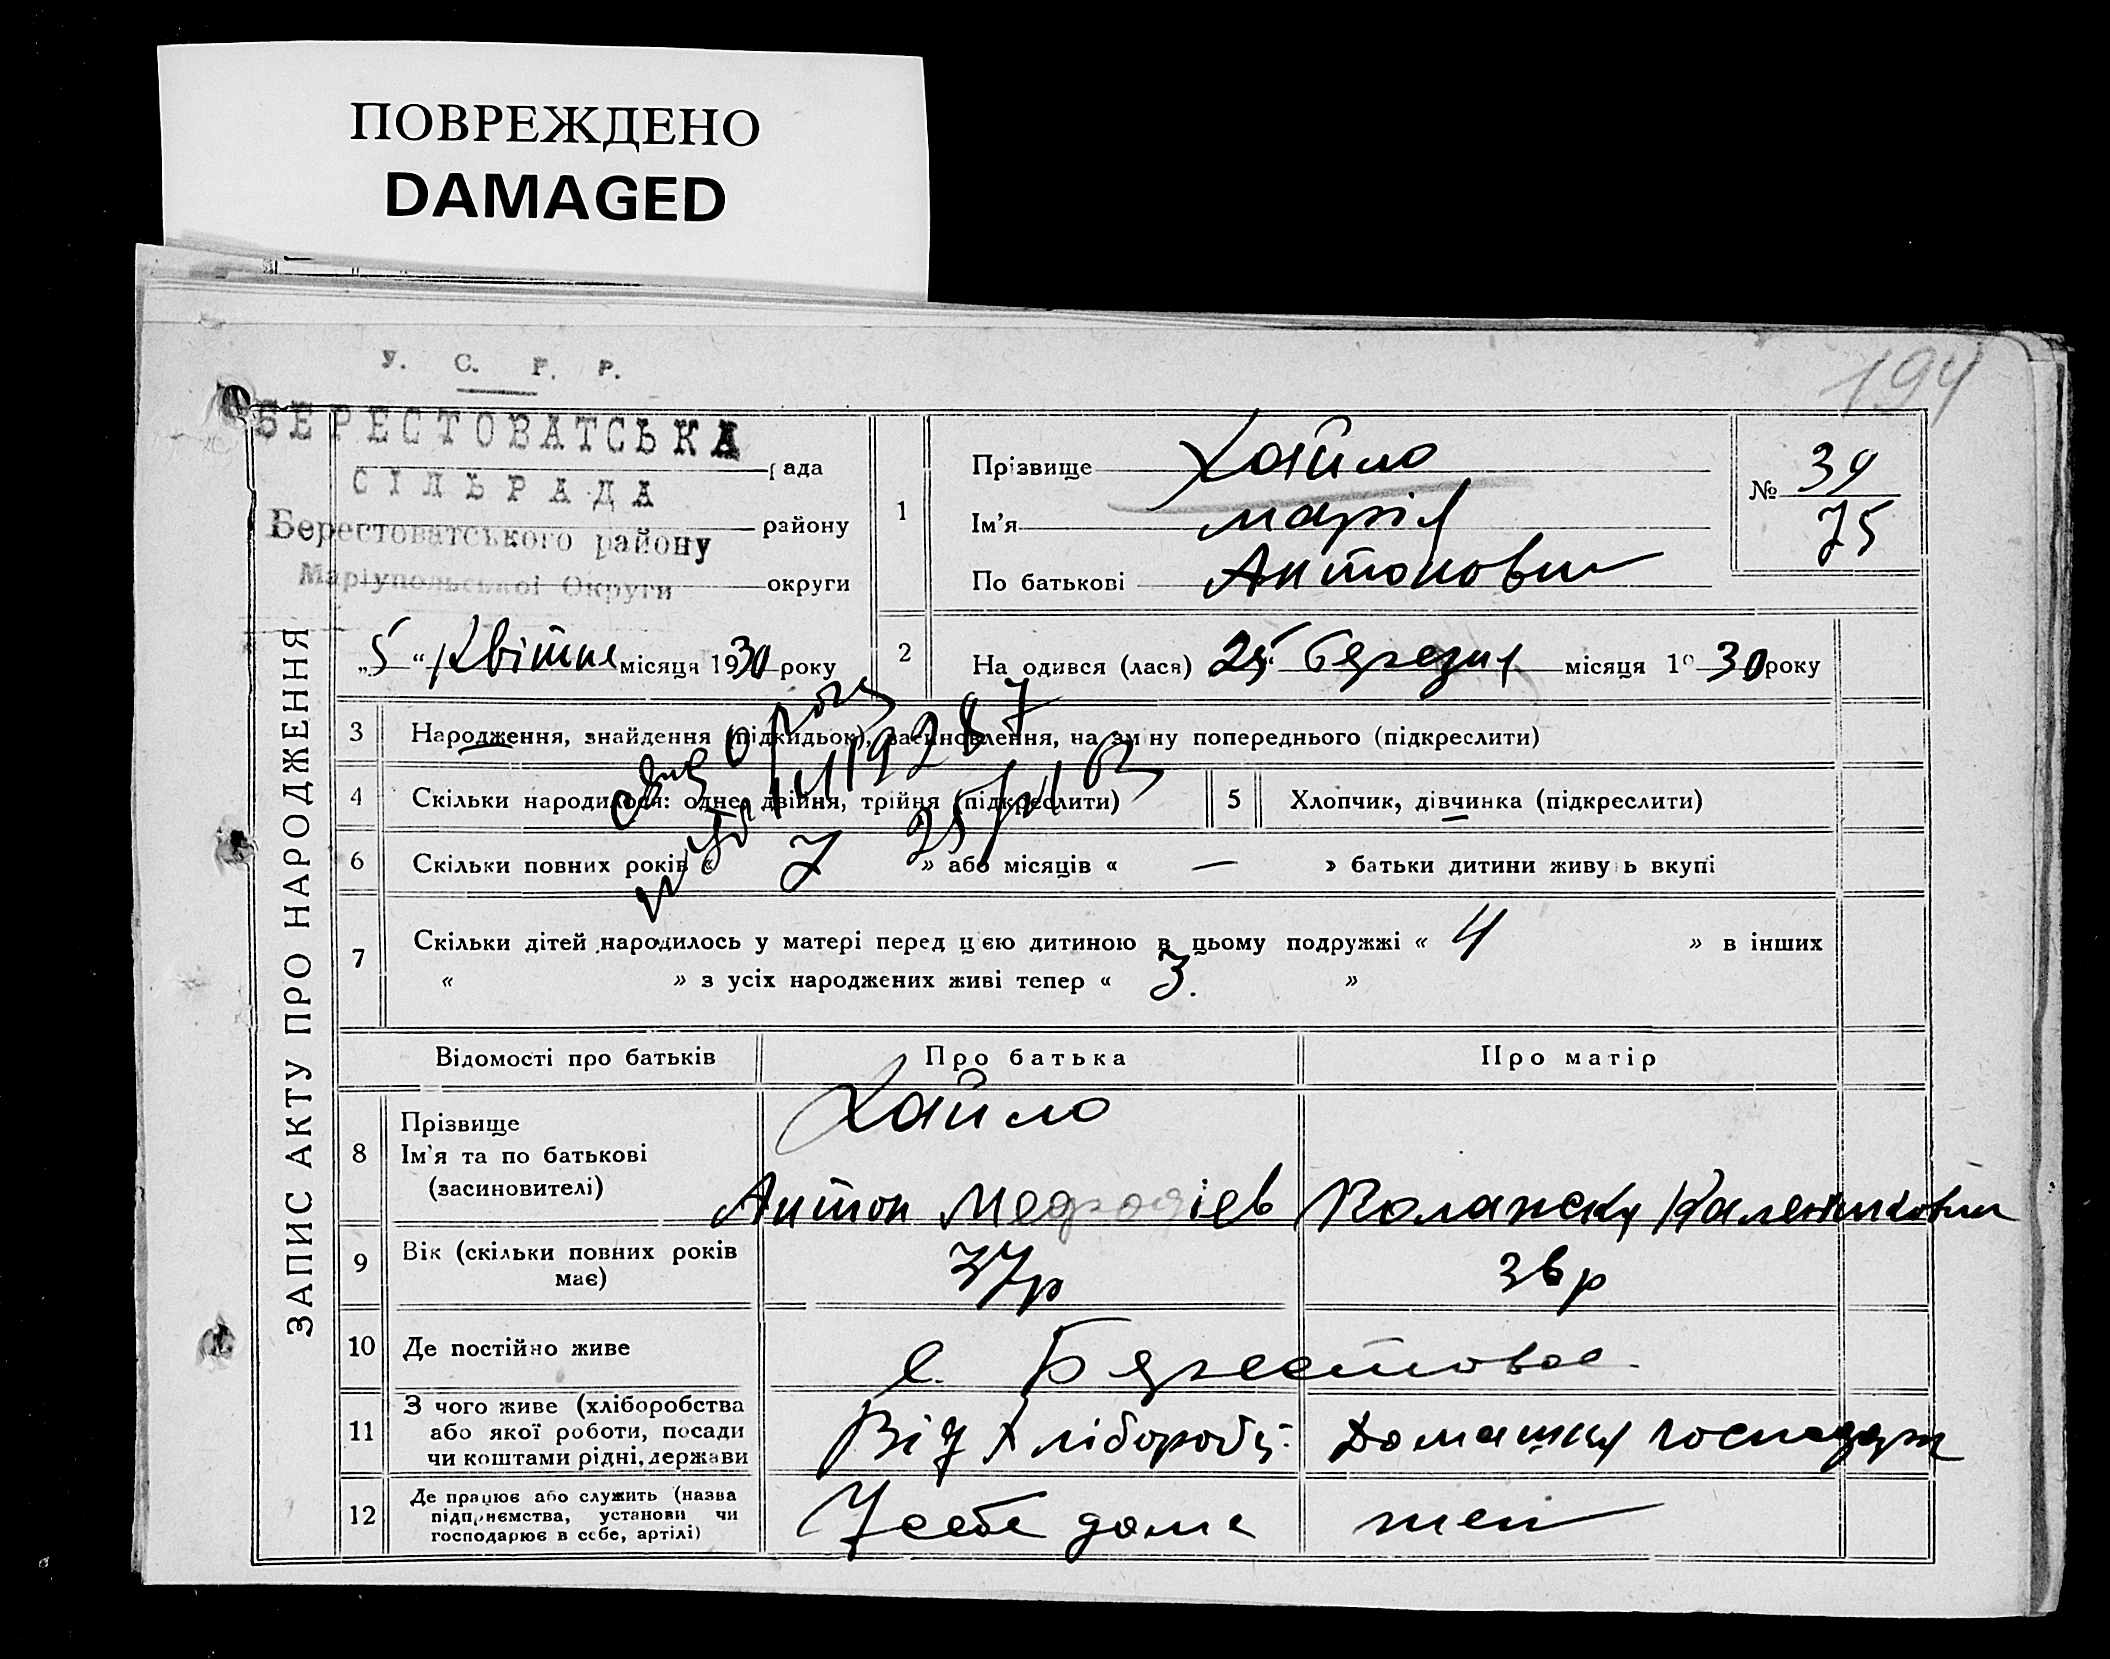 ПОВРЕЖДЕНО
DAMAGED
194
У. С. Р. Р.
БЕРЕСТОВАТСЬКА
рада
СІЛЬРАДА
району
Берестоватського району
Маріупольської Округи
округи
„5“ Квітня місяця 1930 року
1
Прізвище Хайло
Ім'я Марія
По батькові Антоновн
№ 39
75
2
На одився (лася) 25 березня місяця 1930 року
ЗАПИС АКТУ ПРО НАРОДЖЕННЯ
3 Народження, знайдення (підкидьок), засиновлення, на зміну попереднього (підкреслити)
4 Скільки народилося: одне, двійня, трійня (підкреслити)
5 Хлопчик, дівчинка (підкреслити)
6 Скільки повних років « 7 » або місяців « — » батьки дитини живуть вкупі
7 Скільки дітей народилось у матері перед цією дитиною в цьому подружжі « 4 » в інших
« » з усіх народжених живі тепер « 3. »
Відомості про батьків
Про батька
Про матір
8 Прізвище
Ім'я та по батькові
(засиновителі)
Хайло
Антон
9 Вік (скільки повних років
має)
37р
36р
10 Де постійно живе
с. Берестовое
11 З чого живе (хліборобства
або якої роботи, посади
чи коштами рідні, держави
Від Хлібороб
Домашня господар
12 Де працює або служить (назва
підприємства, установи чи
господарює в себе, артілі)
У себе дома
теж